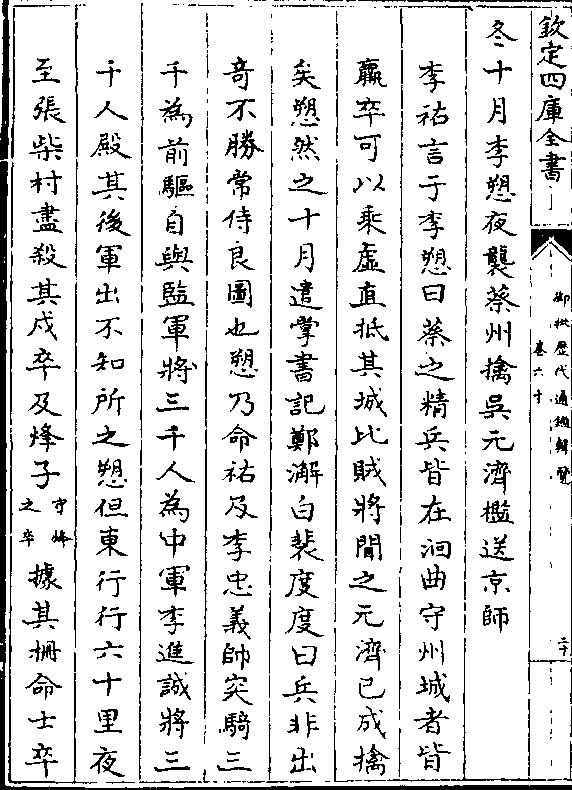 欽定四庫全書
御批歷代通鑑輯覽
卷六十
二十
冬十月李愬夜襲蔡州擒吳元濟檻送京師
李祐言于李愬曰蔡之精兵皆在洄曲守州城者皆
羸卒可以乘虛直抵其城比賊將聞之元濟已成擒
矣愬然之十月遣掌書記鄭澥白裴度度曰兵非出
奇不勝常侍良圖也愬乃命祐及李忠義帥突騎三
千為前驅自與監軍將三千人為中軍李進誠將三
千人殿其後軍出不知所之愬但東行行六十里夜
至張柴村盡殺其戍卒及烽子守烽之卒據其柵命士卒